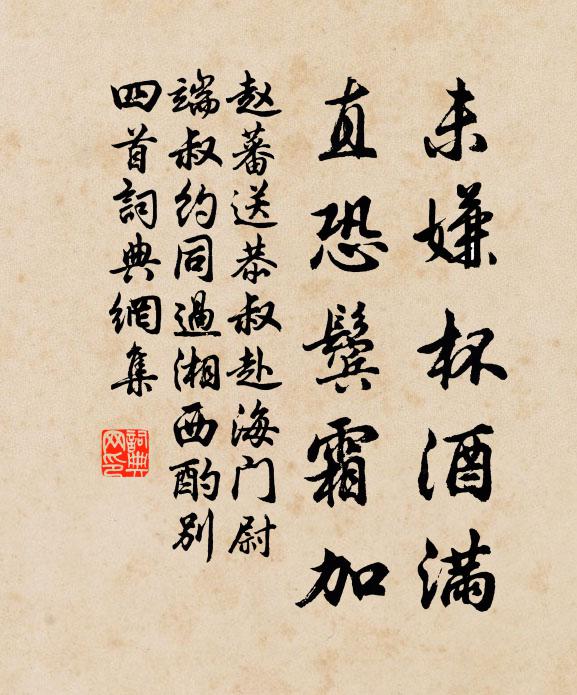 未嫌杯酒满
直恐鬓霜加
赵蕃送恭叔赴海门尉
端叔约同過湘西酌别
四首詞典網集
詞典网印